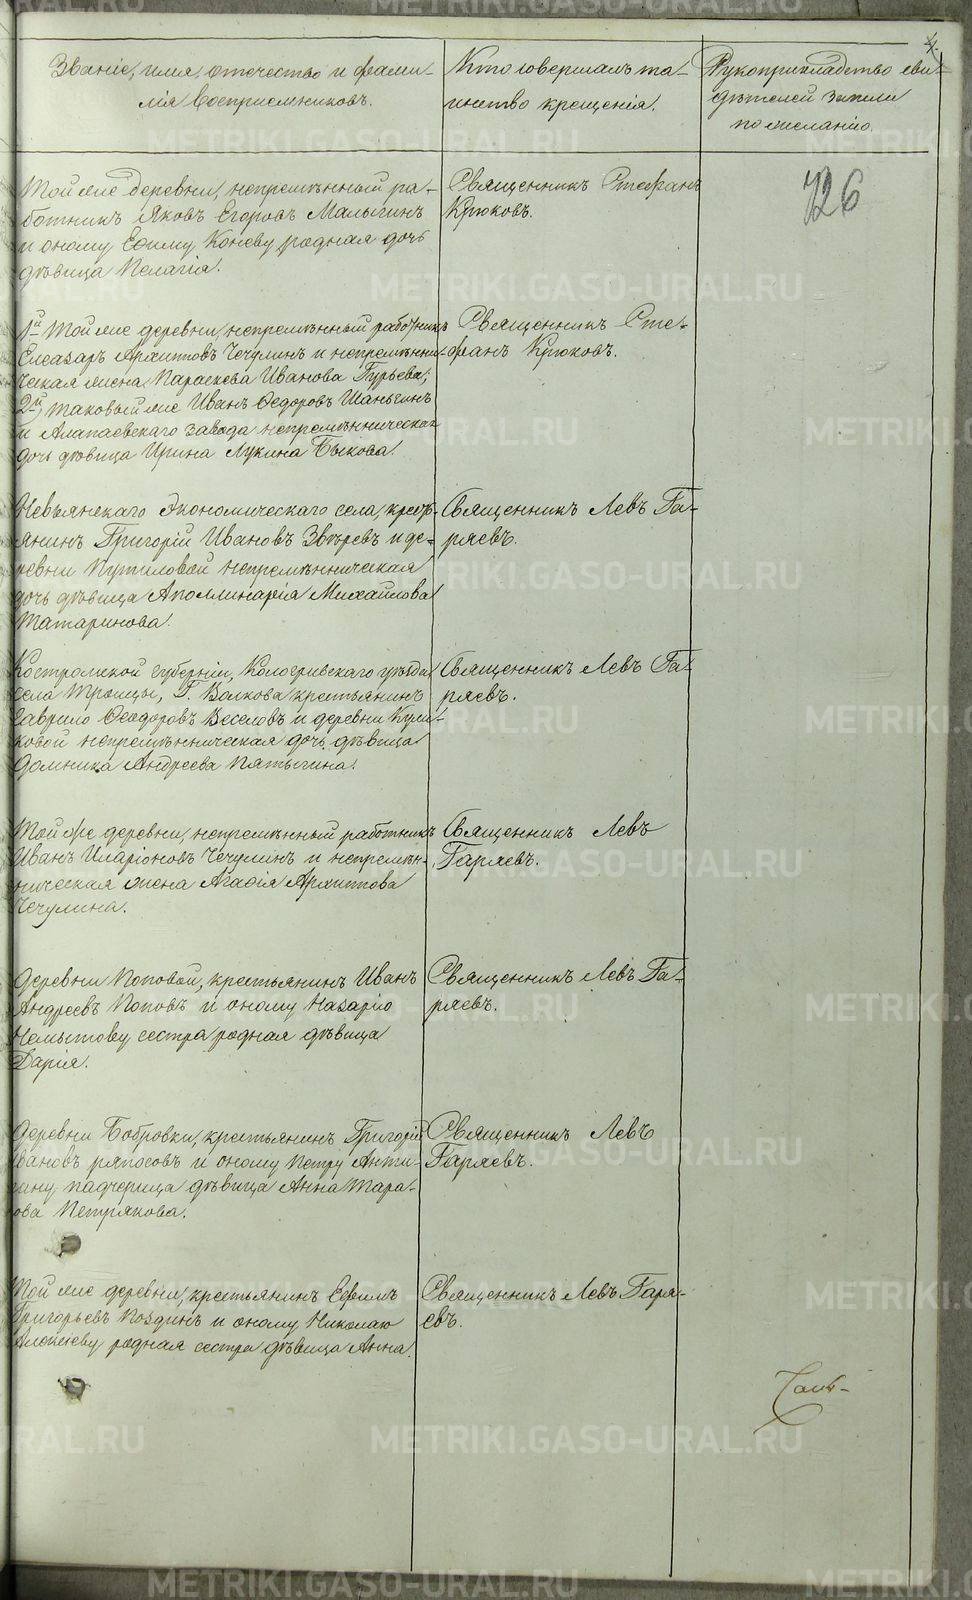 Званіе, имя, отечество и фами-
лія воспріемниковъ.
Кто совершалъ та-
инство крещенія.
Рукоприкладство сви-
дѣтелей записи
по желанію.
4.
726
Той же деревни, непремѣнный ра-
ботникъ Яковъ Егоровъ Малыгинъ
и оному Ефиму Коневу родная дочь
дѣвица Пелагія.
Священникъ Стефанъ
Крюковъ.
1й Той же деревни, непремѣнный работникъ
Елеазаръ Архиповъ Чечулинъ и непремѣнни-
ческая жена Параскева Иванова Гурьева;
2й таковый же Иванъ Ѳедоровъ Шаньгинъ
и Алапаевскаго завода непремѣнническая
дочь дѣвица Ирина Лукина Быкова.
Священникъ Сте-
фанъ Крюковъ.
Невьянскаго Экономическаго села, кресть-
янинъ Григорій Ивановъ Звѣревъ и де-
ревни Путиловой непремѣнническая
дочь дѣвица Аполлинарія Михайлова
Татаринова.
Священникъ Левъ Га-
ряевъ.
Костромской губерніи, Кологривскаго уѣзда,
села Троицы, Г. Волкова крестьянинъ
Гаврило Ѳеодоровъ Веселовъ и деревни
непремѣнническая дочь дѣвица
Домника Андреева Пятыгина.
Священникъ Левъ Га-
ряевъ.
Той же деревни, непремѣнный работникъ
Иванъ Иларіоновъ Чечулинъ и непремѣн-
ническая жена Агафія Архипова
Чечулина.
Священникъ Левъ
Гаряевъ.
Деревни Поповой, крестьянинъ Иванъ
Андреевъ Поповъ и оному Назарію
Чемытову сестра родная дѣвица
Дарія.
Священникъ Левъ Га-
ряевъ.
Деревни Бобровки, крестьянинъ Григорій
Ивановъ Ряпосовъ и оному Петру
падчерица дѣвица Анна Тара-
сова Петрякова.
Священникъ Левъ
Гаряевъ.
Той же деревни, крестьянинъ Ефимъ
Григорьевъ Поздинъ и оному Николаю
Алексѣеву родная сестра дѣвица Анна.
Священникъ Левъ Гаря-
евъ.
METRIKI.GASO-URAL.RU